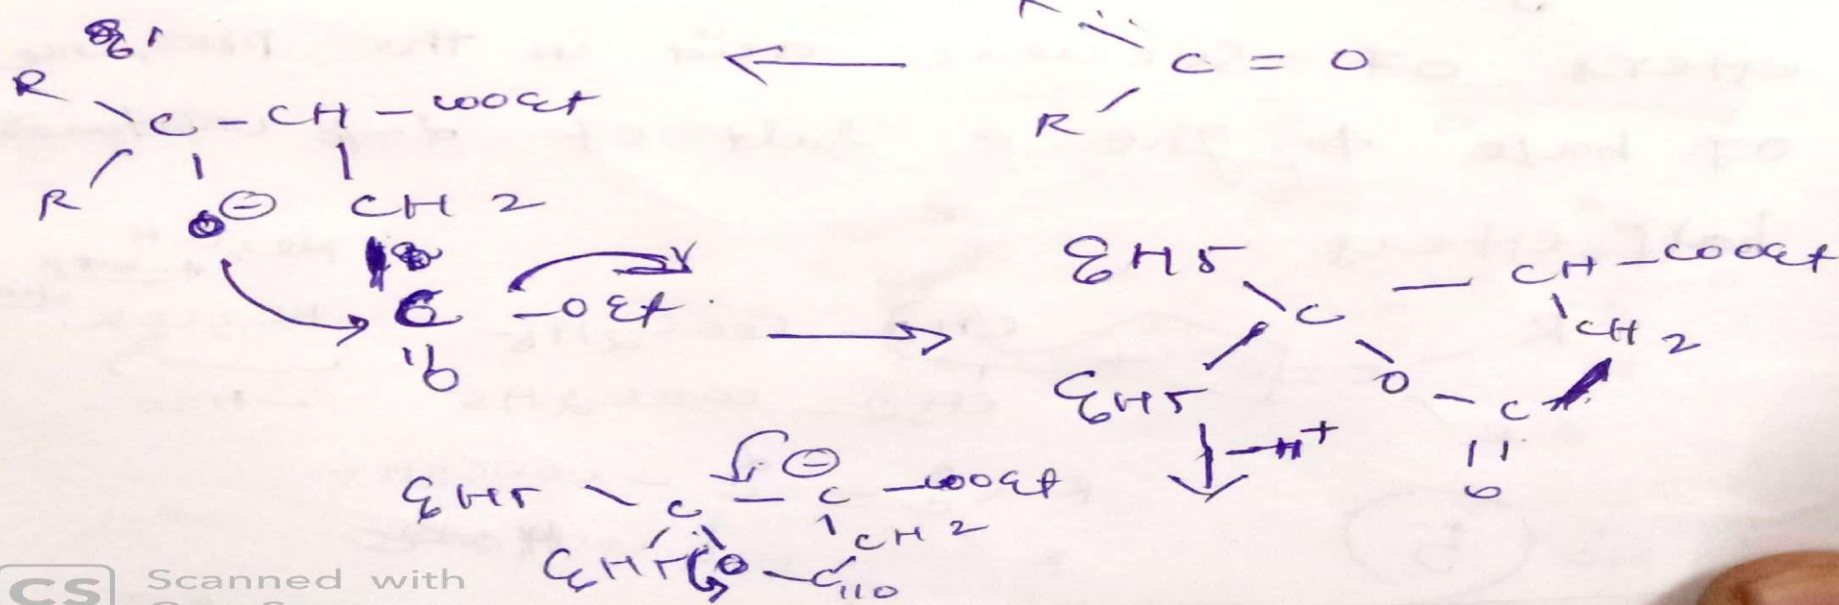 R
C - CH - COOEt
R
⊖ CH2
C - OEt
O
C = O
R
C6H5
C - CH - COOEt
CH2
C6H5
O - C
O
-H+
C6H5 ⊖
C - C - COOEt
CH2
C6H5 O - C
O
CS Scanned with